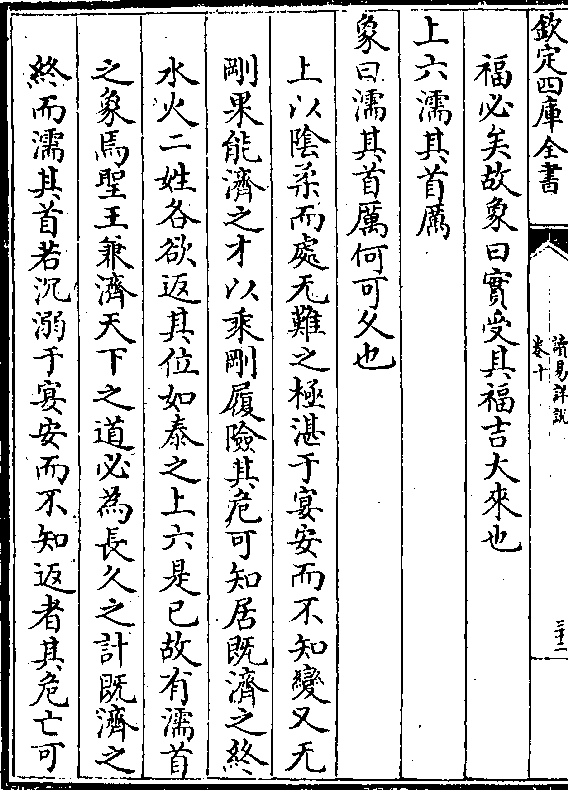 欽定四庫全書
讀易詳說
卷十
三十二
福必矣故象曰實受其福吉大來也
上六濡其首厲
象曰濡其首厲何可久也
上以陰柔而處无難之極湛于宴安而不知變又无
剛果能濟之才以乘剛履險其危可知居既濟之終
水火二姓各欲返其位如泰之上六是已故有濡首
之象焉聖王兼濟天下之道必為長久之計既濟之
終而濡其首若沉溺于宴安而不知返者其危亡可